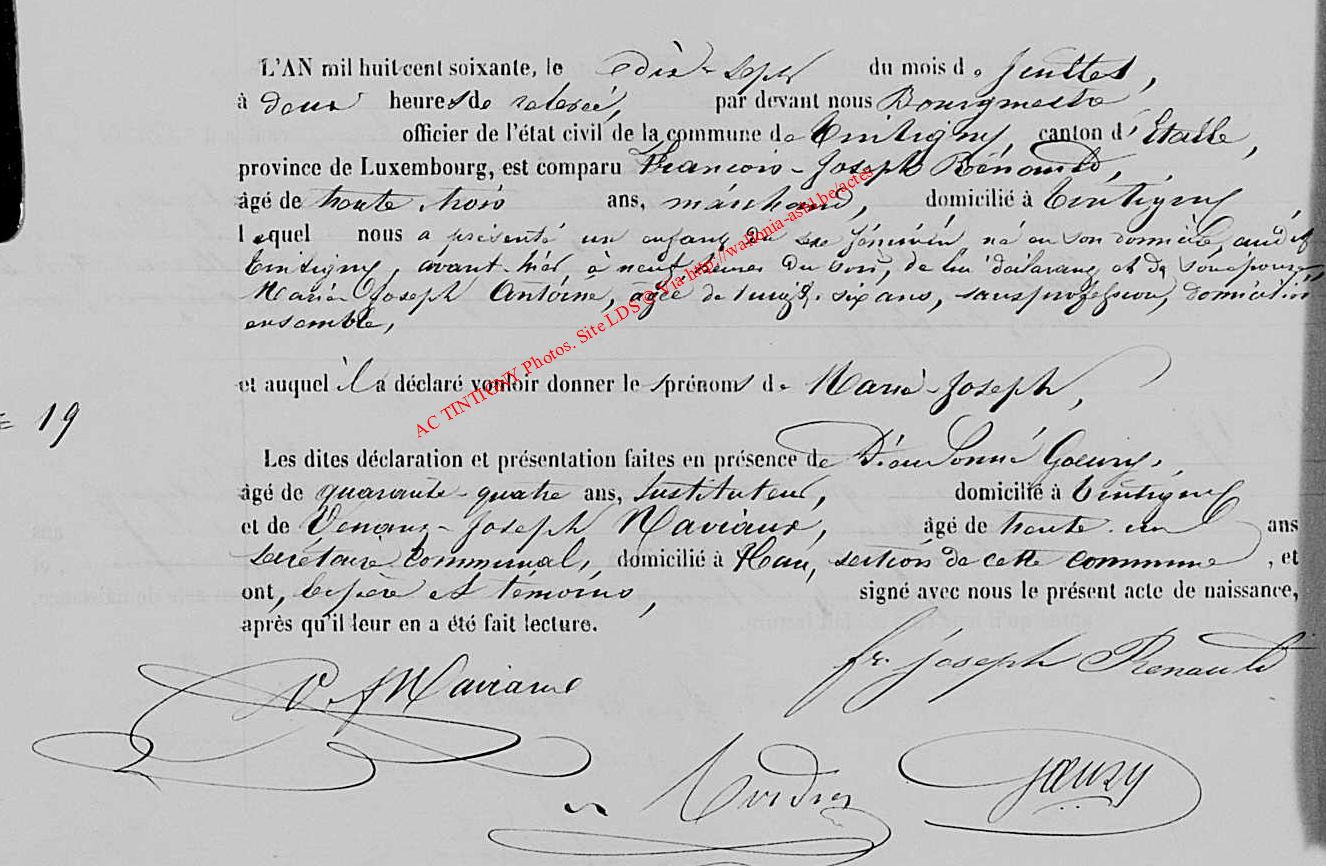 L'AN mil huit cent soixante, le dix-sept du mois de Juillet,
à deux heures de relevée, par devant nous Bourgmestre
officier de l'état civil de la commune de Tintigny, canton d'Etalle,
province de Luxembourg, est comparu François-Joseph Rénauld,
âgé de trente trois ans, marchand, domicilié à Tintigny,
lequel nous a présenté un enfant du sexe féminin, né en son domicile, audit
Tintigny, avant-hier à neuf heures du soir, de lui déclarant et de son épouse,
Marie Joseph Antoine, agée de vingt-six ans, sans profession, domiciliés
ensemble,
et auquel il a déclaré vouloir donner les prénoms de Marie-Joseph,
19
Les dites déclaration et présentation faites en présence de Dieudonné Goeury,
âgé de quarante-quatre ans, Instituteur, domicilié à Tintigny
et de Venant-Joseph Maviaux, âgé de trente-un ans
secrétaire communal, domicilié à Han, section de cette commune, et
ont, le père et témoins, signé avec nous le présent acte de naissance,
après qu'il leur en a été fait lecture.
fr. joseph Renauld
V. J Maviaux
Goeury
AC TINTIGNY Photos. Site LDS © Via http://wallonia-asbl.be/actes